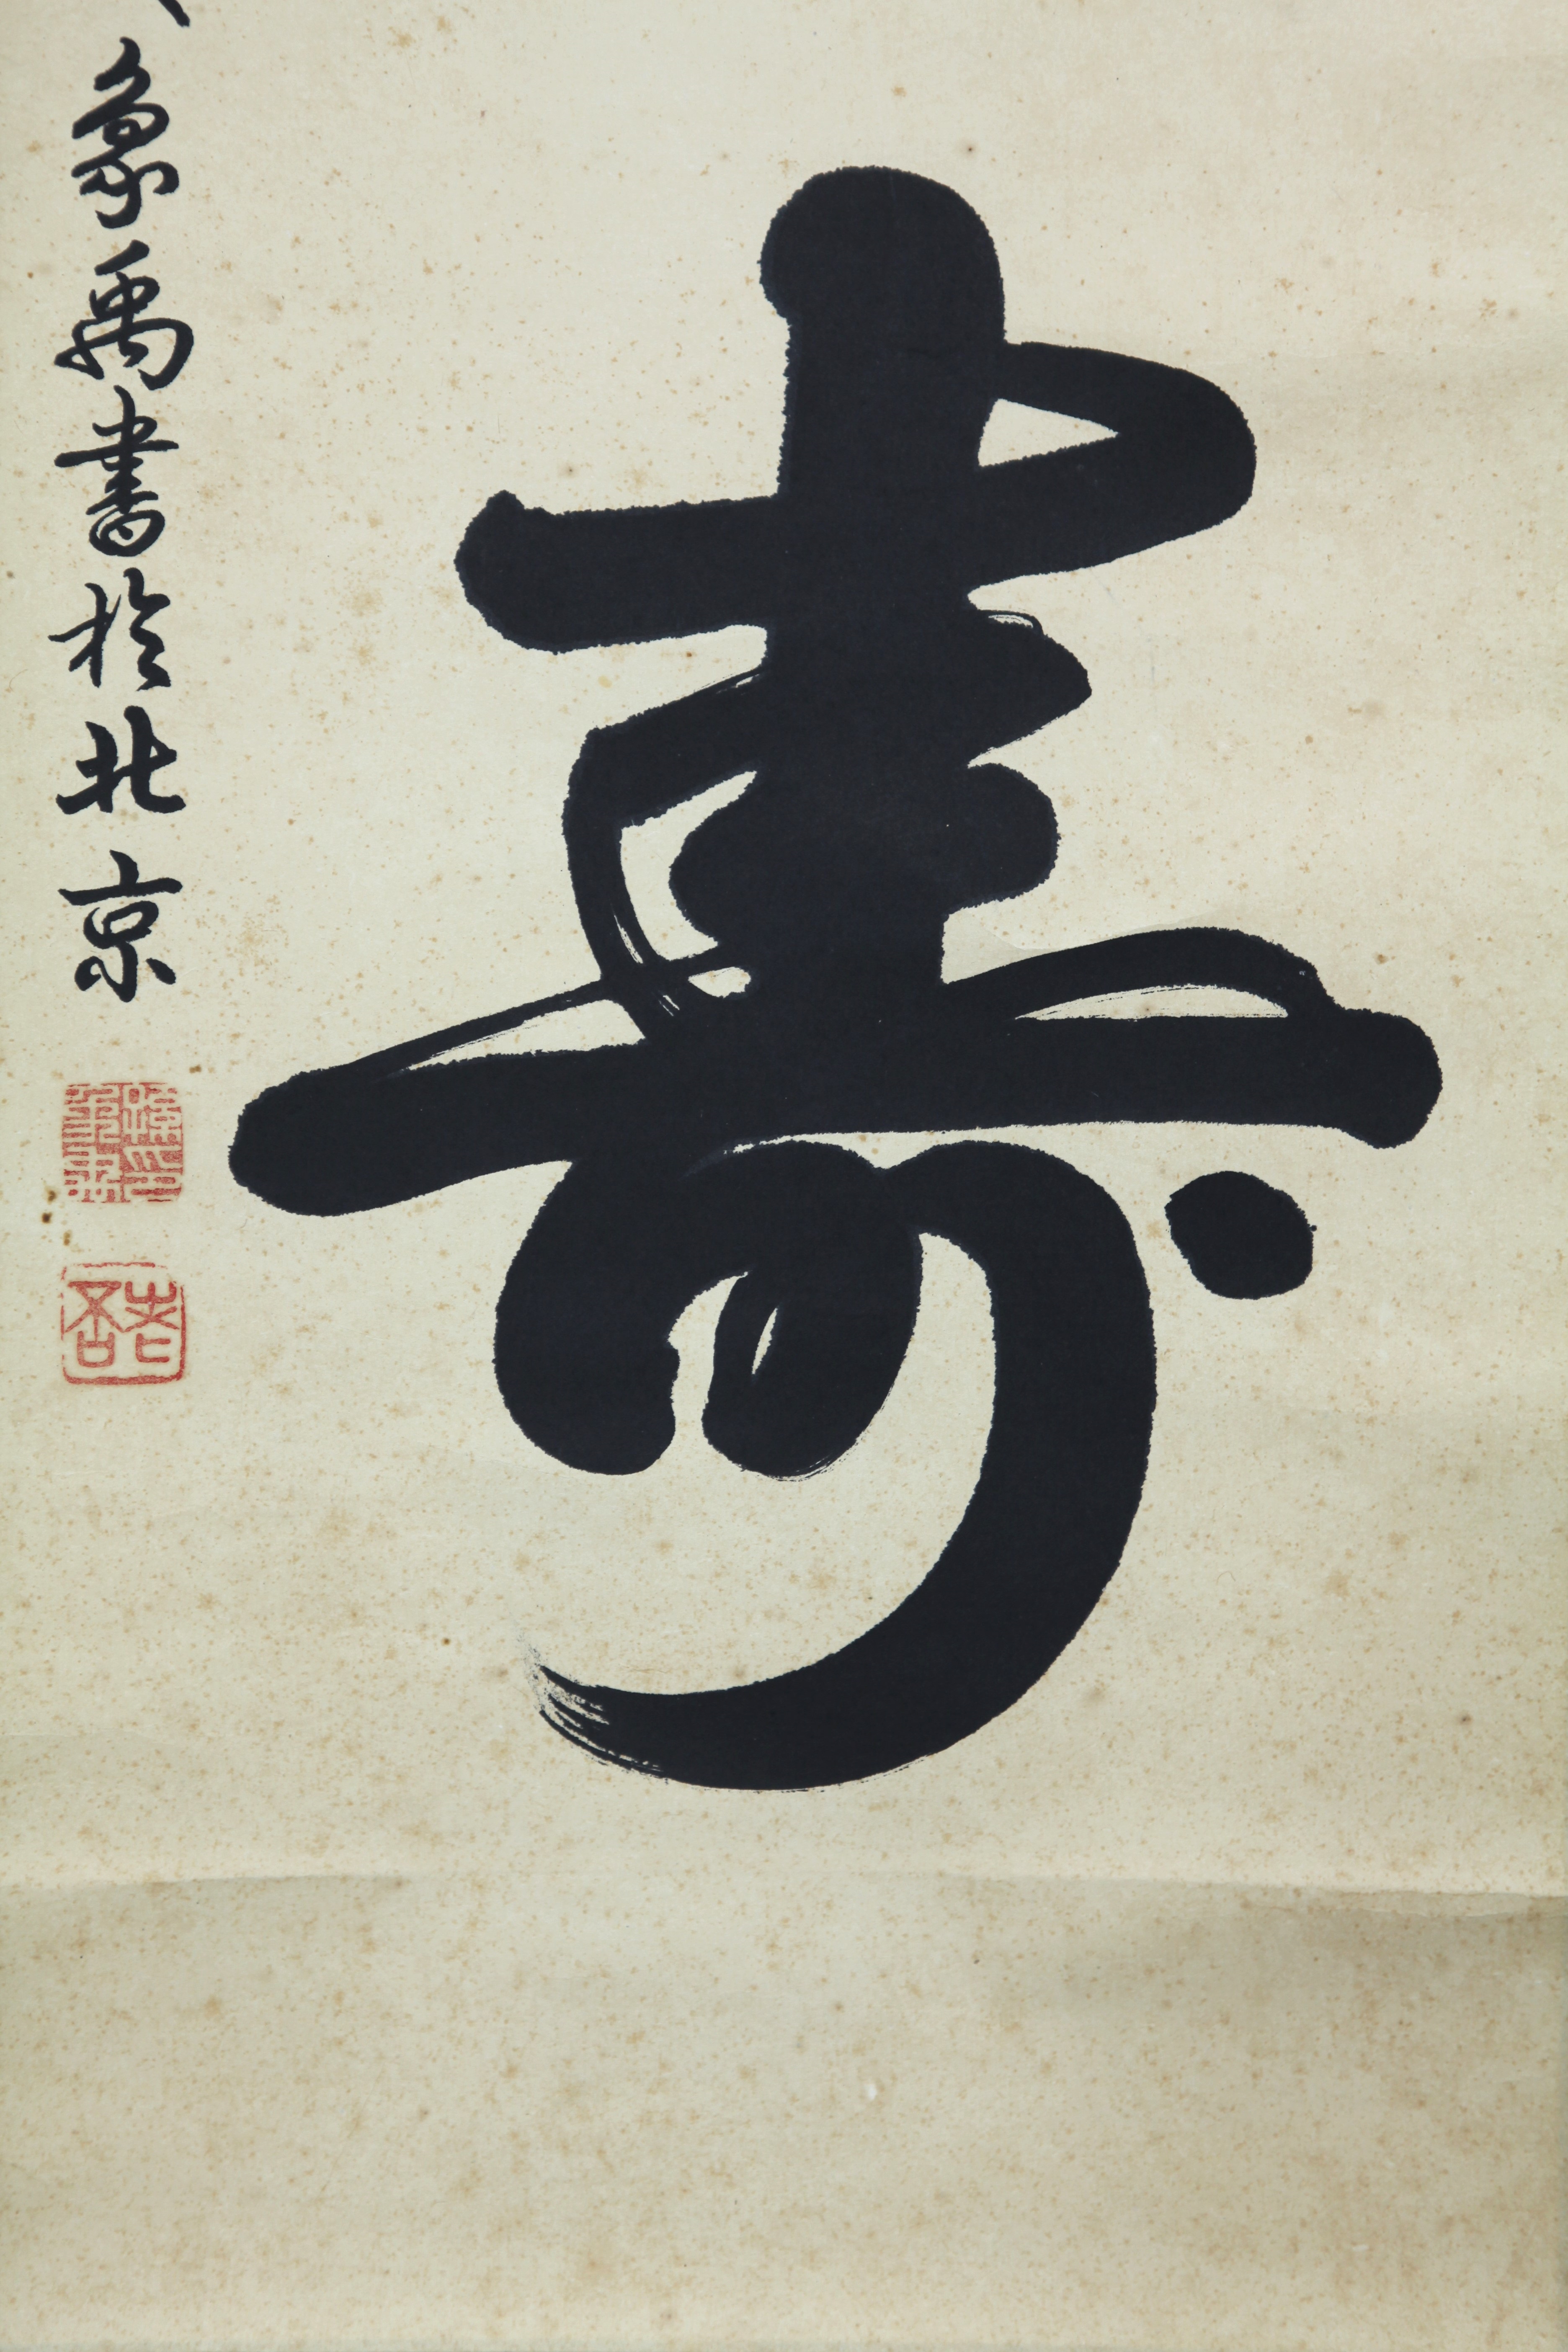 壽
象禹書於北京